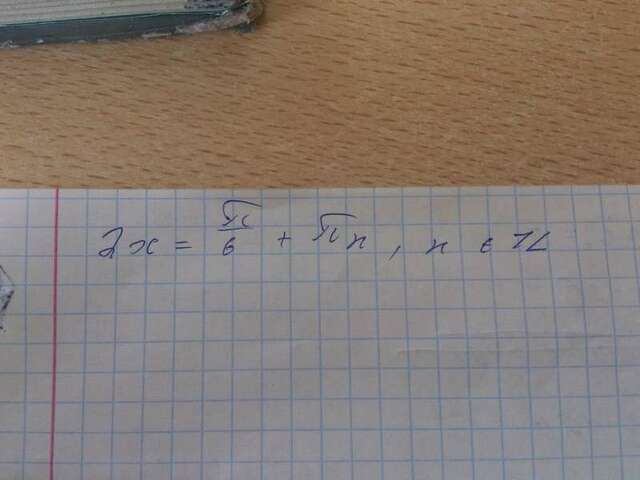 2x = π/6 + πn, n ∈ Z